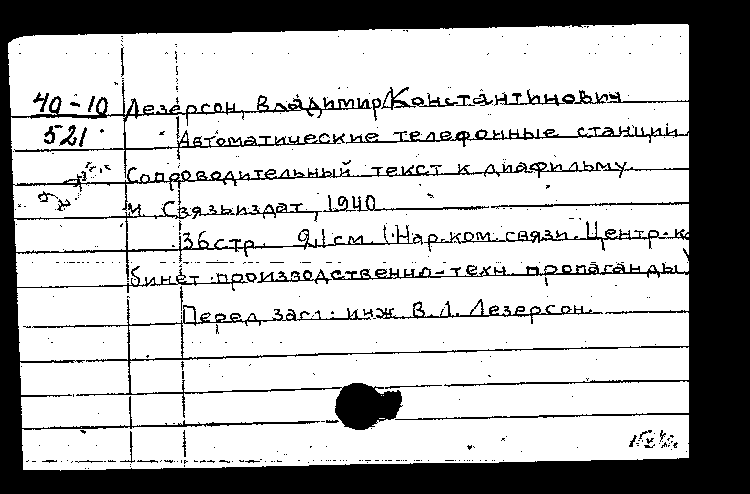 40-10 Лезерсон, Владимир Константинович
521 Автоматические телефонные станции.
Сопроводительный текст к диафильму.
М. Связьиздат, 1940
36 стр. 21 см. (Нар.ком. связи. Центр. ка
бинет производственно-техн. пропаганды)
Перед загл: инж. В.Л. Лезерсон.